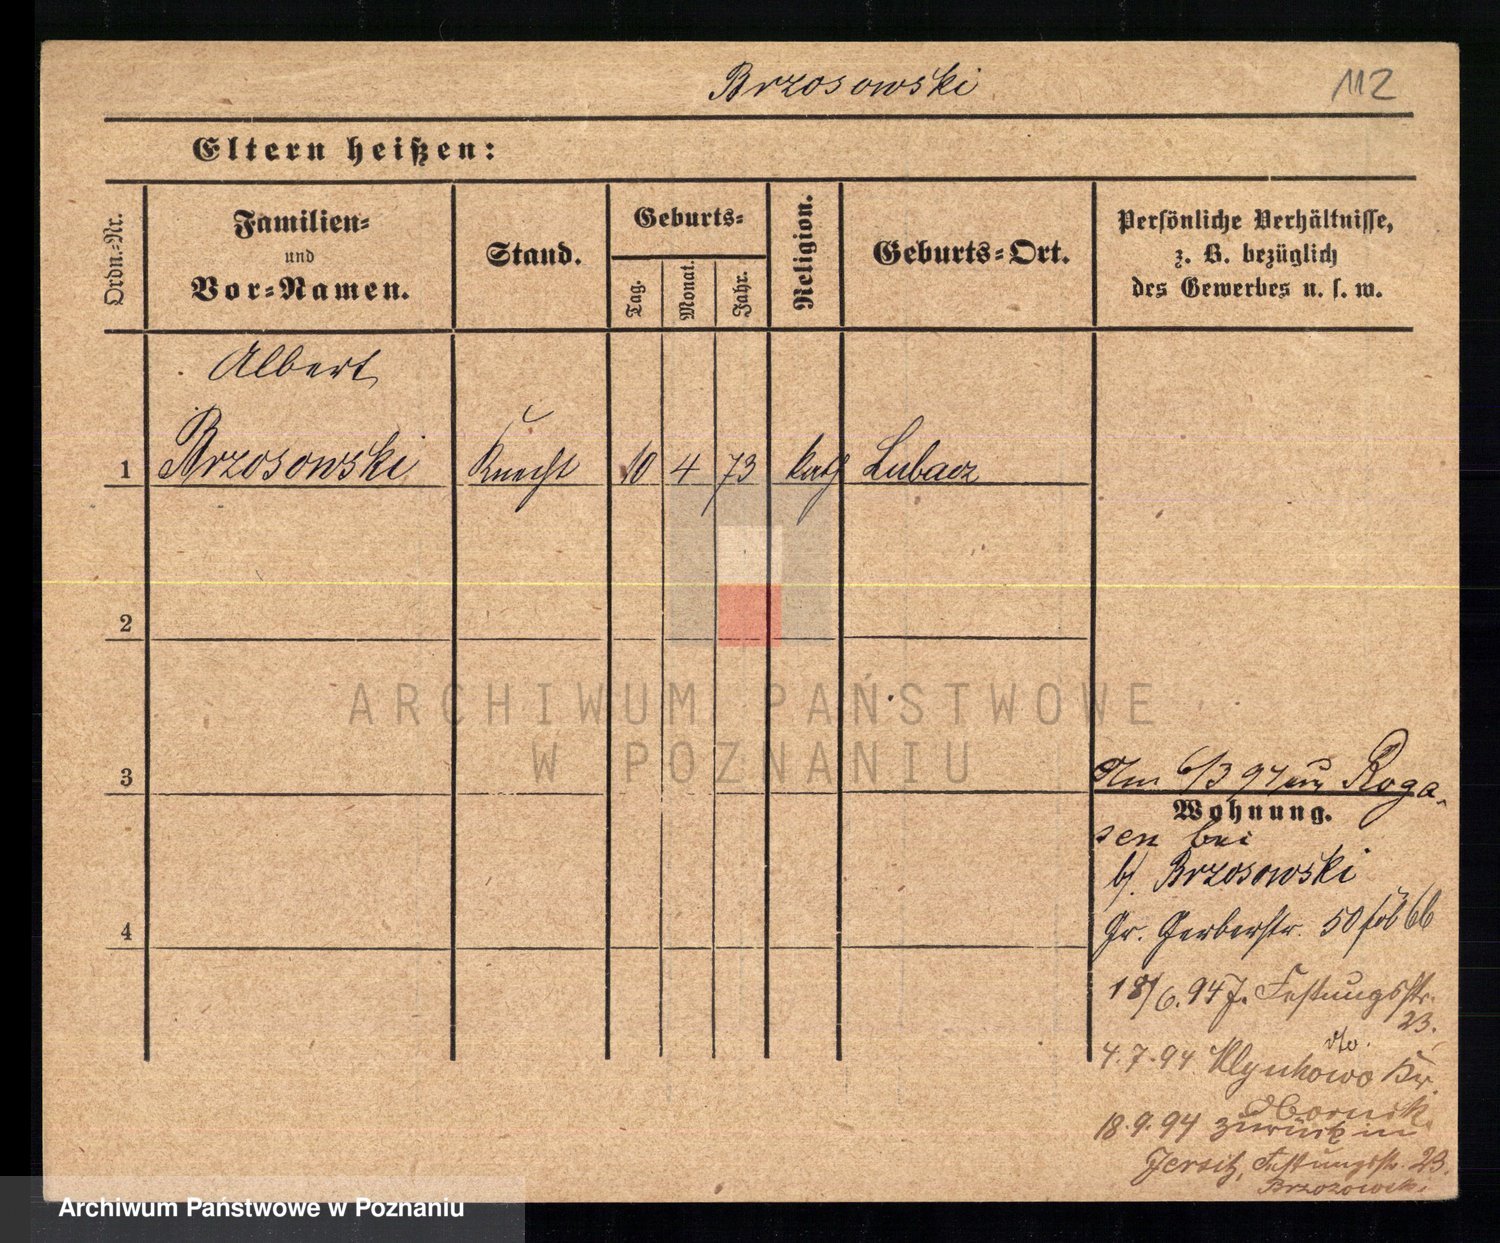 Brzosowski
112
Eltern heißen:
Ordn.-Nr.
Familien-
und
Vor-Namen.
Stand.
Geburts-
Tag.
Monat.
Jahr.
Religion.
Geburts-Ort.
Persönliche Verhältnisse,
z. B. bezüglich
des Gewerbes u. s. w.
Albert
1 Brzosowski Knecht 10 4 73 kath Lubacz
2
3
4
ARCHIWUM PAŃSTWOWE
W POZNANIU
Am 6/3 94 aus Roga-
Wohnung.
sen bei
b/. Brzosowski
Gr. Gerberstr. 50
18/6. 94 J. Festungsstr.
23.
4.7.94 Kr.
Obornik
18.9.94 zurück in
Jersitz, Festungsstr. 23.
Brzozowski
Archiwum Państwowe w Poznaniu